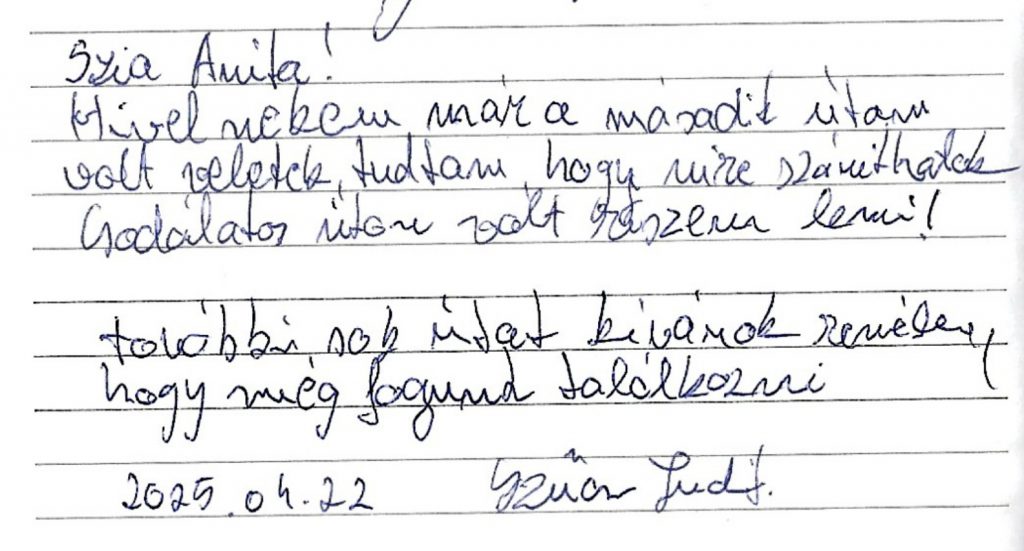 Szia Anita!
Mivel nekem már a másodit útam
volt veletek, tudtam, hogy mire számithatok
Csodálatos úton volt részem lenni!
további sok útat kivánok remélem,
hogy még fogunk találkozni
2025.04.22 Szűcs Judit.